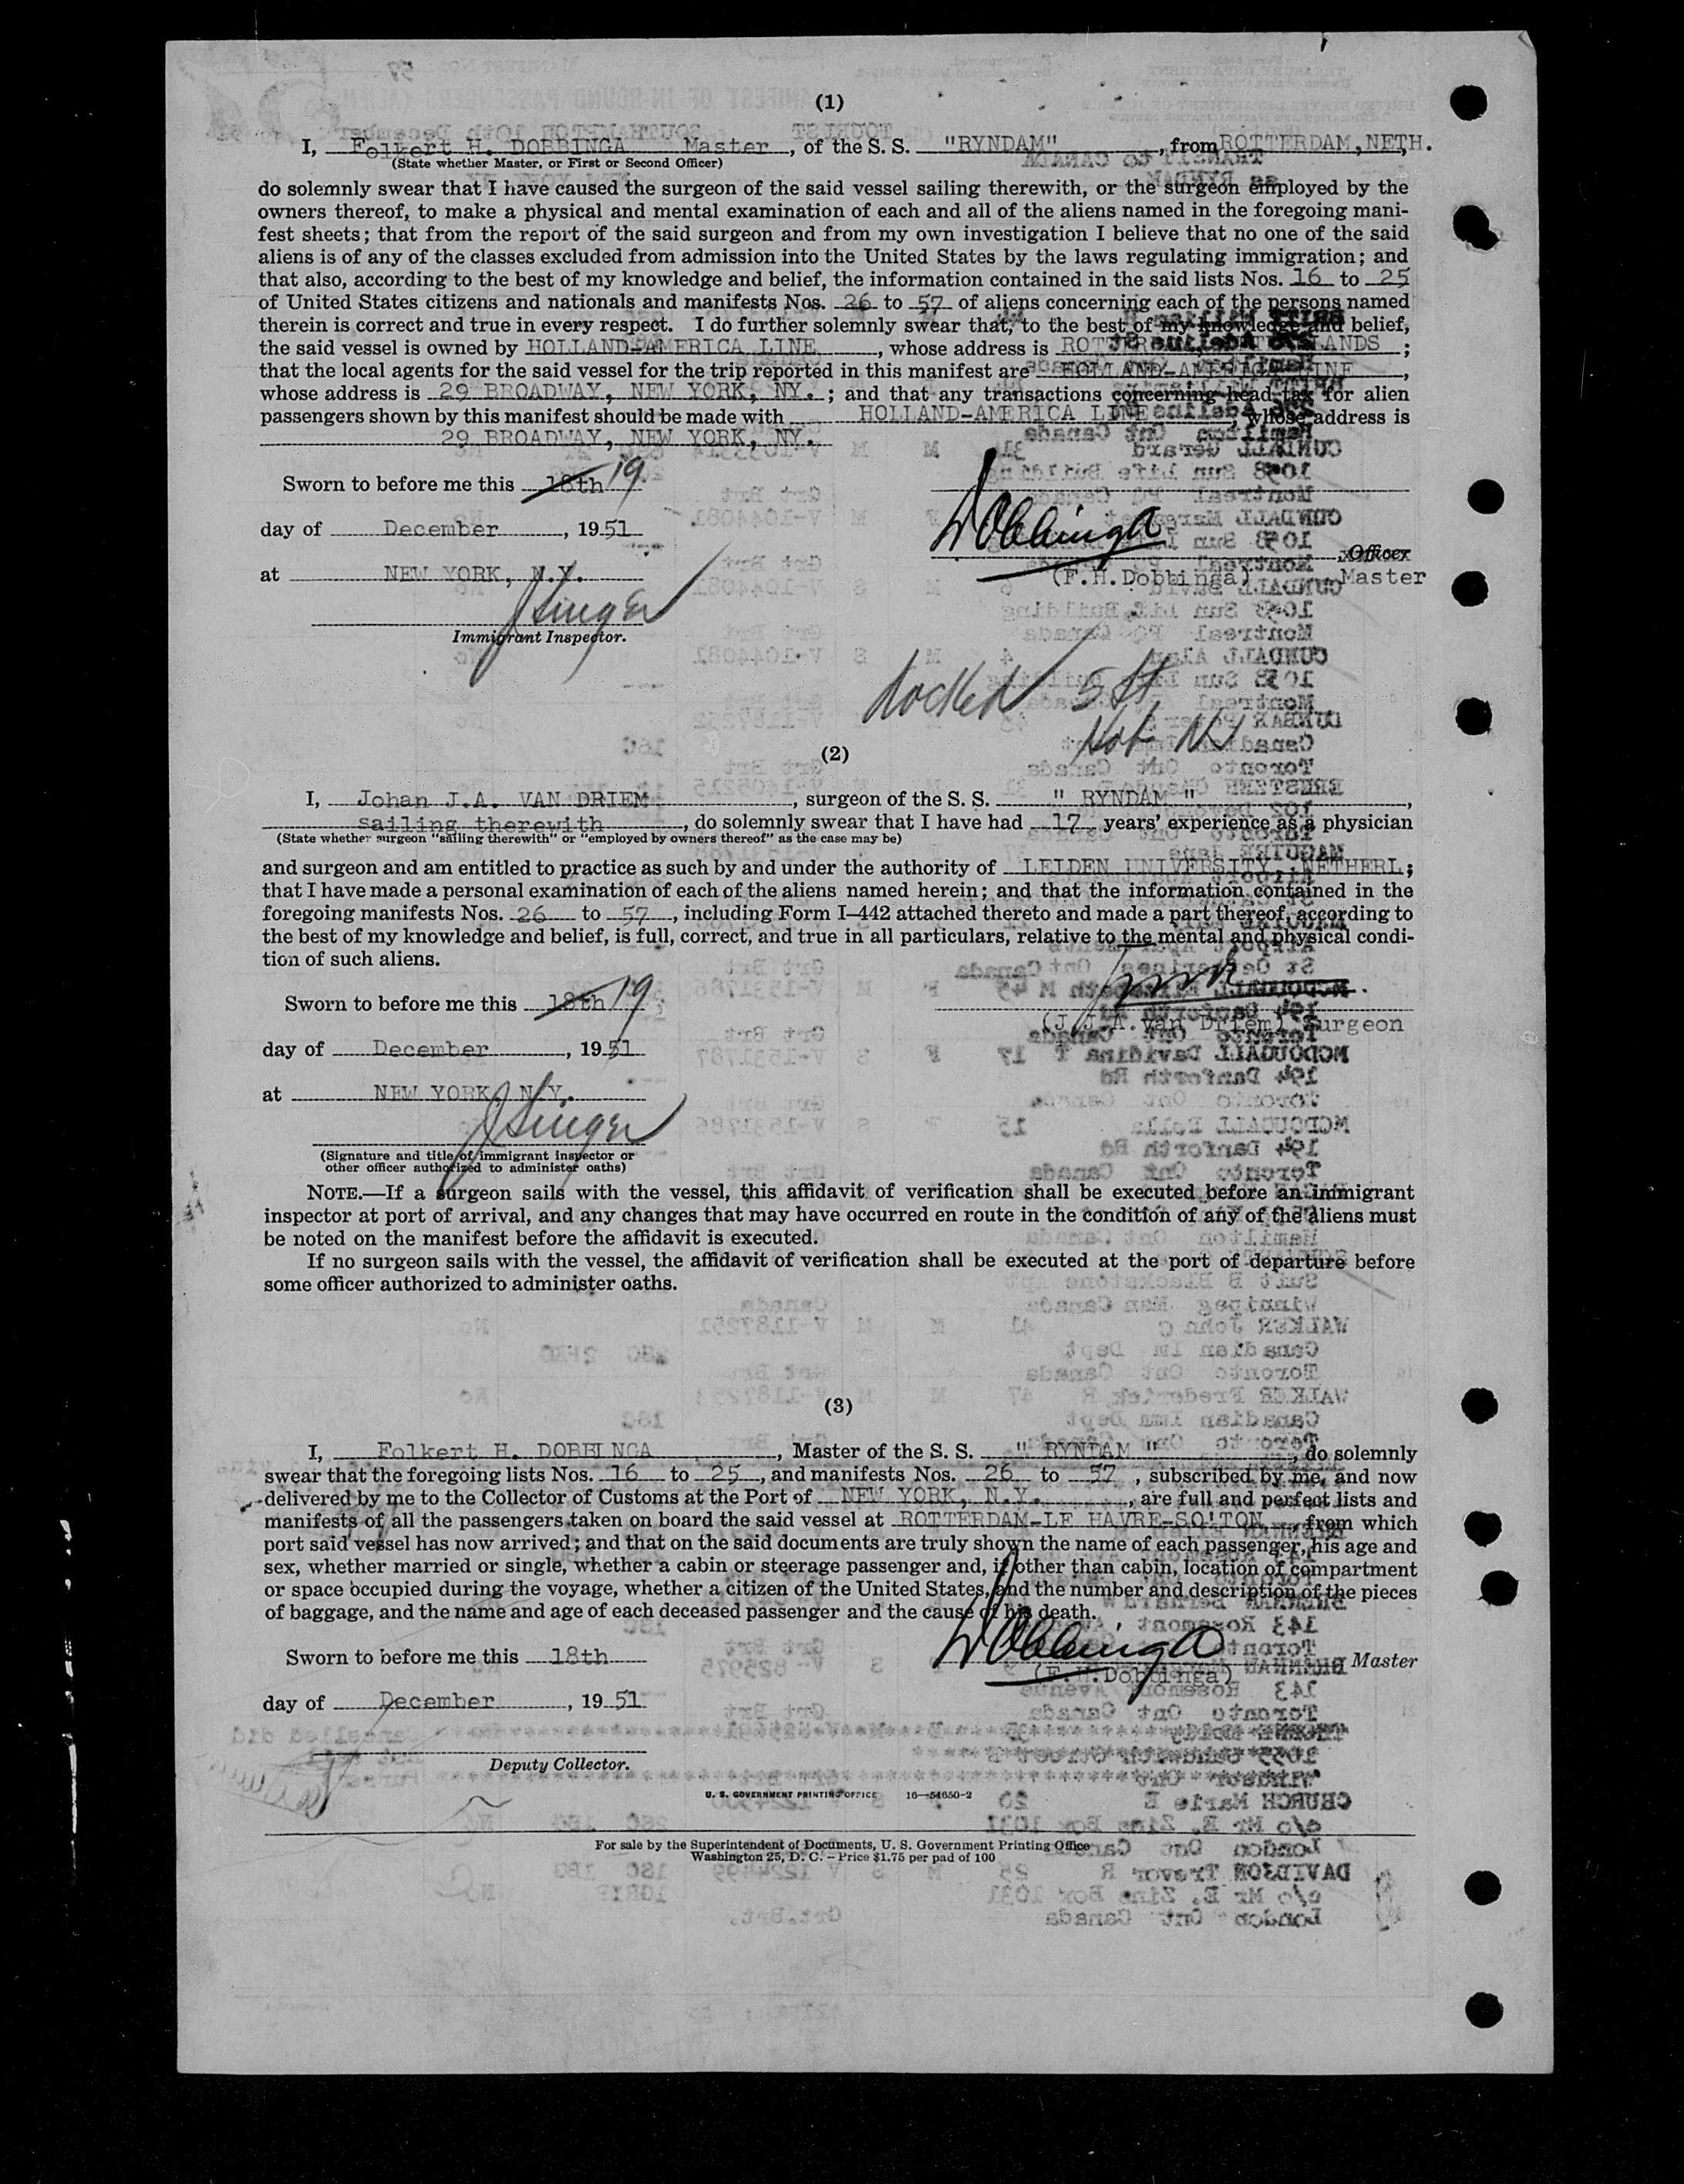 (1)
I, Folkert H. DOBBINGA Master, of the S. S. "RYNDAM", from ROTTERDAM, NETH.
(State whether Master, or First or Second Officer)
do solemnly swear that I have caused the surgeon of the said vessel sailing therewith, or the surgeon employed by the
owners thereof, to make a physical and mental examination of each and all of the aliens named in the foregoing mani-
fest sheets; that from the report of the said surgeon and from my own investigation I believe that no one of the said
aliens is of any of the classes excluded from admission into the United States by the laws regulating immigration; and
that also, according to the best of my knowledge and belief, the information contained in the said lists Nos. 16 to 25
of United States citizens and nationals and manifests Nos. 26 to 57 of aliens concerning each of the persons named
therein is correct and true in every respect. I do further solemnly swear that, to the best of my knowledge and belief,
the said vessel is owned by HOLLAND-AMERICA LINE, whose address is ROTTERDAM, NETHERLANDS;
that the local agents for the said vessel for the trip reported in this manifest are HOLLAND-AMERICA LINE,
whose address is 29 BROADWAY, NEW YORK, NY.; and that any transactions concerning head tax for alien
passengers shown by this manifest should be made with HOLLAND-AMERICA LINE, whose address is
29 BROADWAY, NEW YORK, NY.
Sworn to before me this 18th 19
day of December, 1951
Dobbinga
Officer
at NEW YORK, N.Y.
(F.H.Dobbinga) Master
J Singer
Immigrant Inspector.
docked 5 St
Hob NJ
(2)
I, Johan J.A. VAN DRIEM, surgeon of the S. S. " RYNDAM ",
sailing therewith, do solemnly swear that I have had 17 years' experience as a physician
(State whether surgeon "sailing therewith" or "employed by owners thereof" as the case may be)
and surgeon and am entitled to practice as such by and under the authority of LEIDEN UNIVERSITY, NETHERL;
that I have made a personal examination of each of the aliens named herein; and that the information contained in the
foregoing manifests Nos. 26 to 57, including Form I-442 attached thereto and made a part thereof, according to
the best of my knowledge and belief, is full, correct, and true in all particulars, relative to the mental and physical condi-
tion of such aliens.
Sworn to before me this 18th 19
(J.J.A. van Driem) Surgeon
day of December, 1951
at NEW YORK, N.Y.
J Singer
(Signature and title of immigrant inspector or
other officer authorized to administer oaths)
NOTE.—If a surgeon sails with the vessel, this affidavit of verification shall be executed before an immigrant
inspector at port of arrival, and any changes that may have occurred en route in the condition of any of the aliens must
be noted on the manifest before the affidavit is executed.
If no surgeon sails with the vessel, the affidavit of verification shall be executed at the port of departure before
some officer authorized to administer oaths.
(3)
I, Folkert H. DOBBINGA, Master of the S. S. " RYNDAM ", do solemnly
swear that the foregoing lists Nos. 16 to 25, and manifests Nos. 26 to 57, subscribed by me, and now
delivered by me to the Collector of Customs at the Port of NEW YORK, N.Y., are full and perfect lists and
manifests of all the passengers taken on board the said vessel at ROTTERDAM-LE HAVRE-SO'TON, from which
port said vessel has now arrived; and that on the said documents are truly shown the name of each passenger, his age and
sex, whether married or single, whether a cabin or steerage passenger and, if other than cabin, location of compartment
or space occupied during the voyage, whether a citizen of the United States, and the number and description of the pieces
of baggage, and the name and age of each deceased passenger and the cause of his death.
Dobbinga
Sworn to before me this 18th
Master
(F.H.Dobbinga)
day of December, 1951
Deputy Collector.
U. S. GOVERNMENT PRINTING OFFICE 16—54650-2
For sale by the Superintendent of Documents, U. S. Government Printing Office
Washington 25, D. C. - Price $1.75 per pad of 100